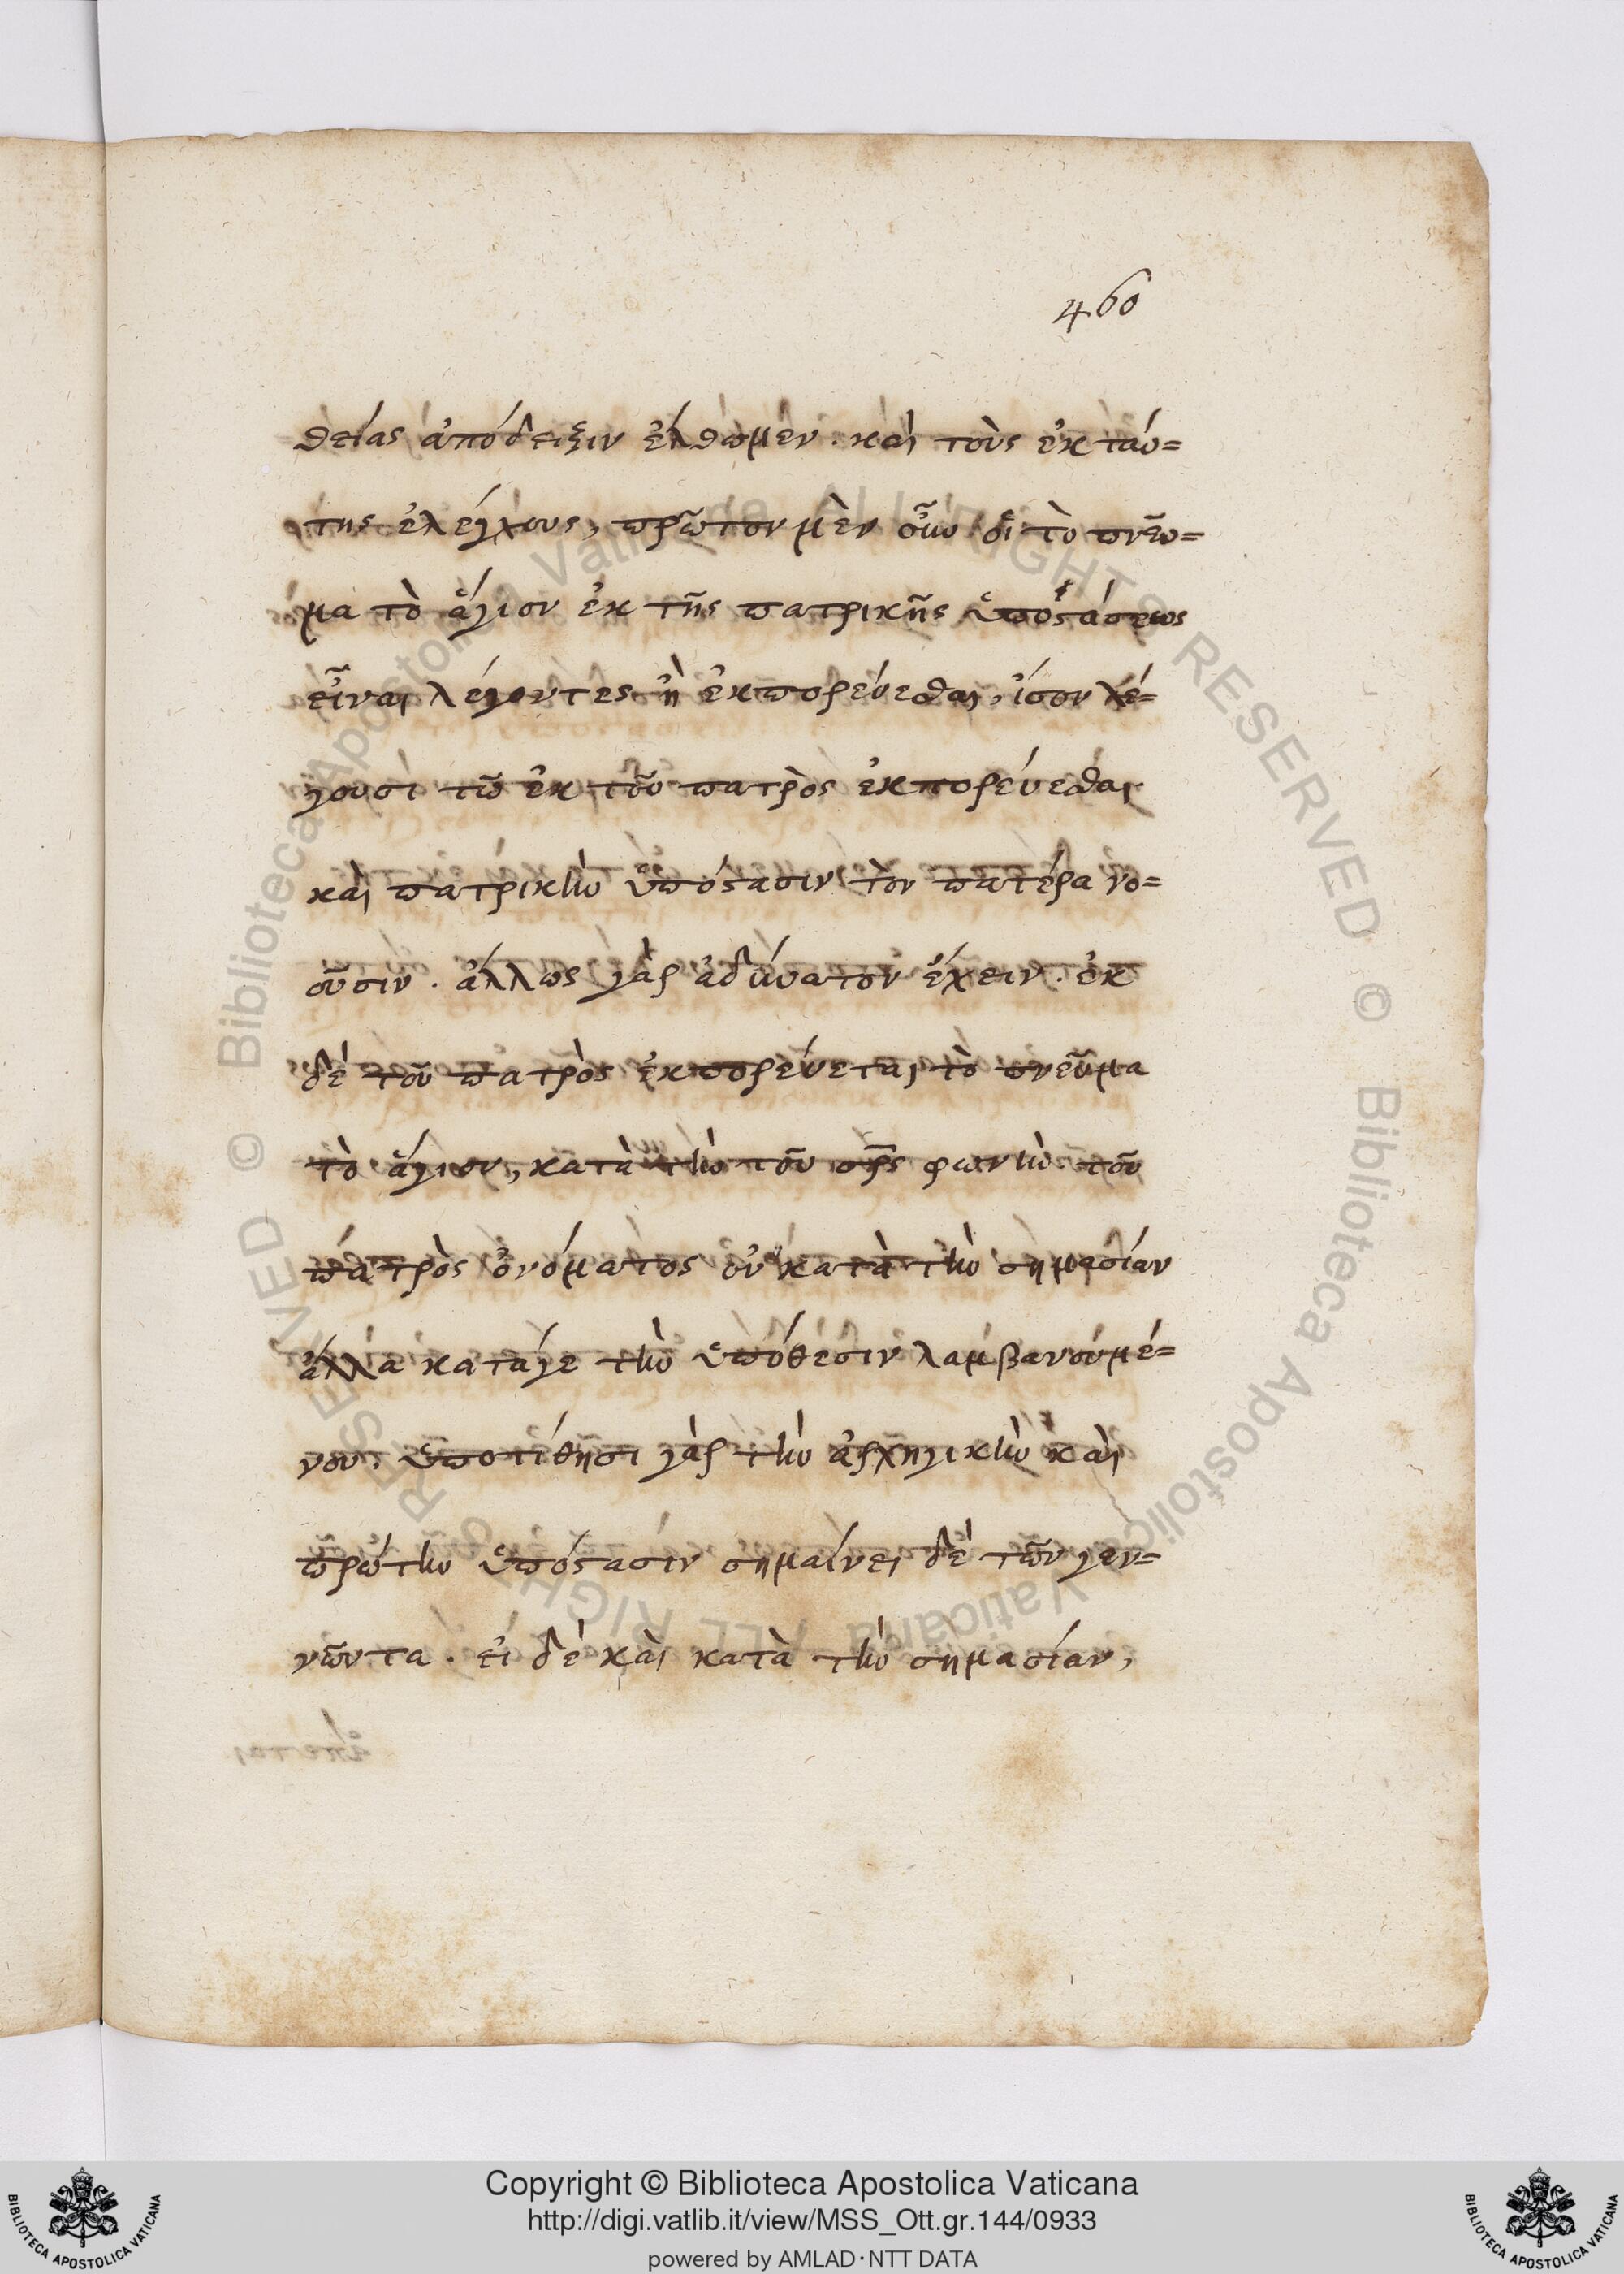 460
θείας ἀπόδειξιν ἔλθωμεν. καὶ τοὺς ἐκ ταύ=
της ἐλέγχους, πρῶτον μὲν οὖν οἱ τὸ πνεῦ=
μα τὸ ἅγιον ἐκ τῆς πατρικῆς ὑποστάσεως
εἶναι λέγοντες ἢ ἐκπορεύεσθαι, ἴσον λέ=
γουσι τῶ ἐκ τοῦ πατρὸς ἐκπορεύεσθαι
καὶ πατρικὴν ὑπόστασιν τὸν πατέρα νο=
οῦσιν. ἄλλως γὰρ ἀδύνατον ἔχειν. ἐκ
δὲ τοῦ πατρὸς ἐκπορεύεται τὸ πνεῦμα
τὸ ἅγιον, κατὰ τὴν τοῦ σρ̅ς φωνὴν τοῦ
πατρὸς ὀνόματος οὐ κατὰ τὴν σημασίαν
ἀλλὰ κατάγε τὴν ὑπόθεσιν λαμβανουμέ=
νου, ὑποτίθησι γὰρ τὴν ἀρχηγικὴν καὶ
πρώτην ὑπόστασιν σημαίνει δὲ τῶν γεν=
νῶντα. εἰ δὲ καὶ κατὰ τὴν σημασίαν,
© Biblioteca Apostolica Vaticana ALL RIGHTS RESERVED © Biblioteca Apostolica Vaticana ALL RIGHTS RESERVED
Copyright © Biblioteca Apostolica Vaticana
http://digi.vatlib.it/view/MSS_Ott.gr.144/0933
powered by AMLAD·NTT DATA
BIBLIOTECA APOSTOLICA VATICANA
BIBLIOTECA APOSTOLICA VATICANA